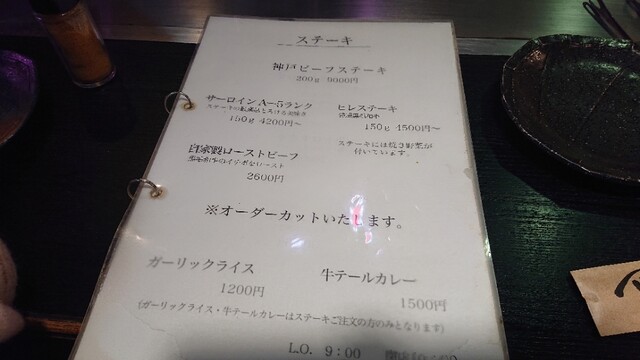 ステーキ
神戸ビーフステーキ
200g 9000円
サーロインA-5ランク
150g 4200円〜
ヒレステーキ
150g 4500円〜
自家製ローストビーフ
2600円
ステーキには焼き野菜が
付いています。
※オーダーカットいたします。
ガーリックライス
1200円
牛テールカレー
1500円
(ガーリックライス・牛テールカレーはステーキご注文の方のみとなります)
L.O. 9:00